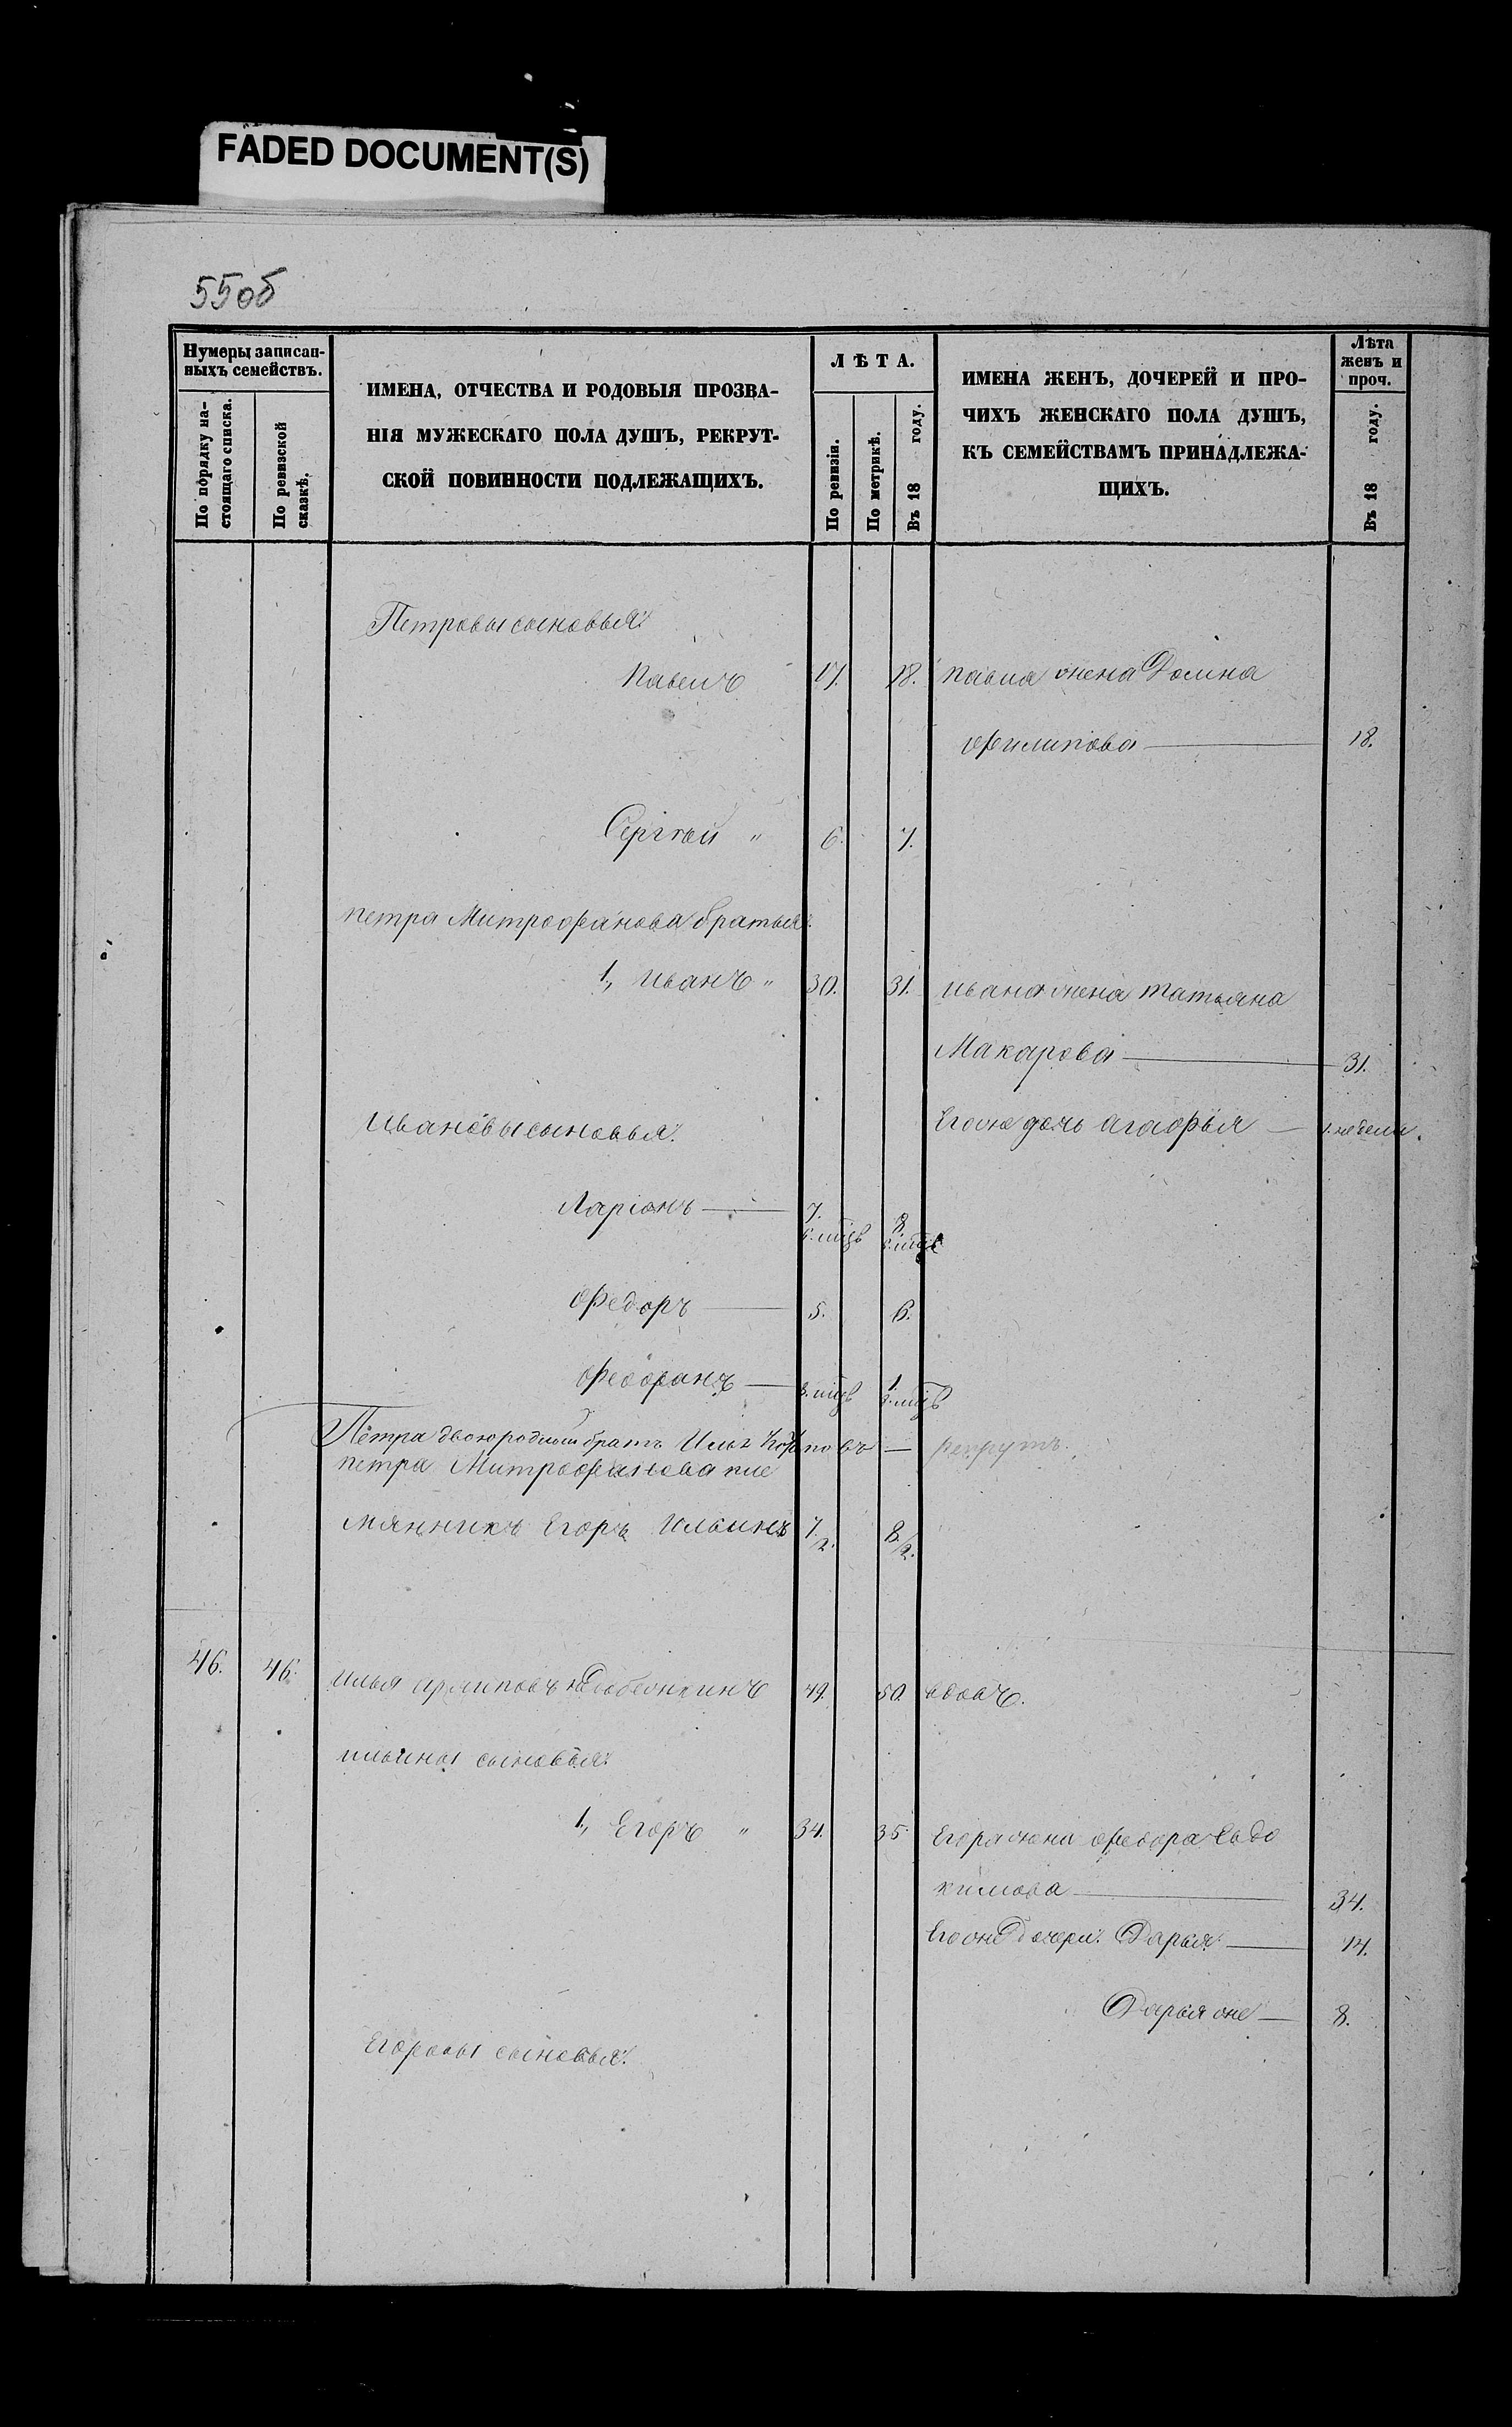 FADED DOCUMENT(S)
55об
Нумеры записан-
ныхъ семействъ.
По порядку на-
стоящаго списка.
По ревизской
сказкѣ.
ИМЕНА, ОТЧЕСТВА И РОДОВЫЯ ПРОЗВА-
НІЯ МУЖЕСКАГО ПОЛА ДУШЪ, РЕКРУТ-
СКОЙ ПОВИННОСТИ ПОДЛЕЖАЩИХЪ.
ЛѢТА.
По ревизіи.
По метрикѣ.
Въ 18 году.
ИМЕНА ЖЕНЪ, ДОЧЕРЕЙ И ПРО-
ЧИХЪ ЖЕНСКАГО ПОЛА ДУШЪ,
КЪ СЕМЕЙСТВАМЪ ПРИНАДЛЕЖА-
ЩИХЪ.
Лѣта
женъ и
проч.
Въ 18 году.
Петровы сыновья:
Павелъ 17. 18. павла жена Домна
Филипова — 18.
Сергѣй " 6. 7.
петра Митрофанова братья:
1, иванъ " 30. 31. ивана жена татьяна
Макарова — 31.
Ивановы сыновья: Егоже дочь агафья — 1. недели.
Ларіонъ — 7. 8.
6. мцъ 6. мцъ
Федоръ — 5. 6.
Феофанъ — 3. мцъ 1 3. мцъ
Петра двоюродный братъ Илья Карповъ — рекрутъ.
петра Митрофанова пле
мянникъ Егоръ Ильинъ 7/2. 8/2.
46. 46. илья архиповъ 49. 50. вдовъ.
ильины сыновья:
1, Егоръ " 34. 35 Егора жена федора Евдо
кимова — 34.
Егоже дочери: Дарья — 14.
Дарья же — 8.
Егоровы сыновья: